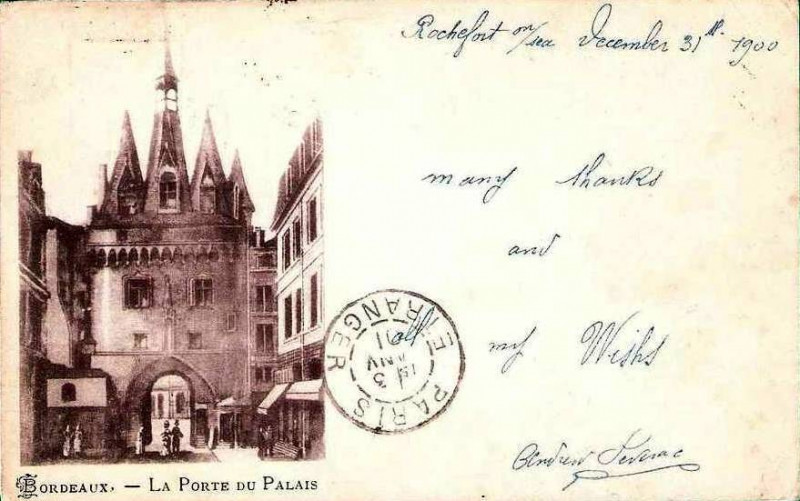 Rochefort on/sea December 31st 1900
many thanks
and
all my Wishs
PARIS ETRANGER
5
JANV
01
BORDEAUX. — LA PORTE DU PALAIS